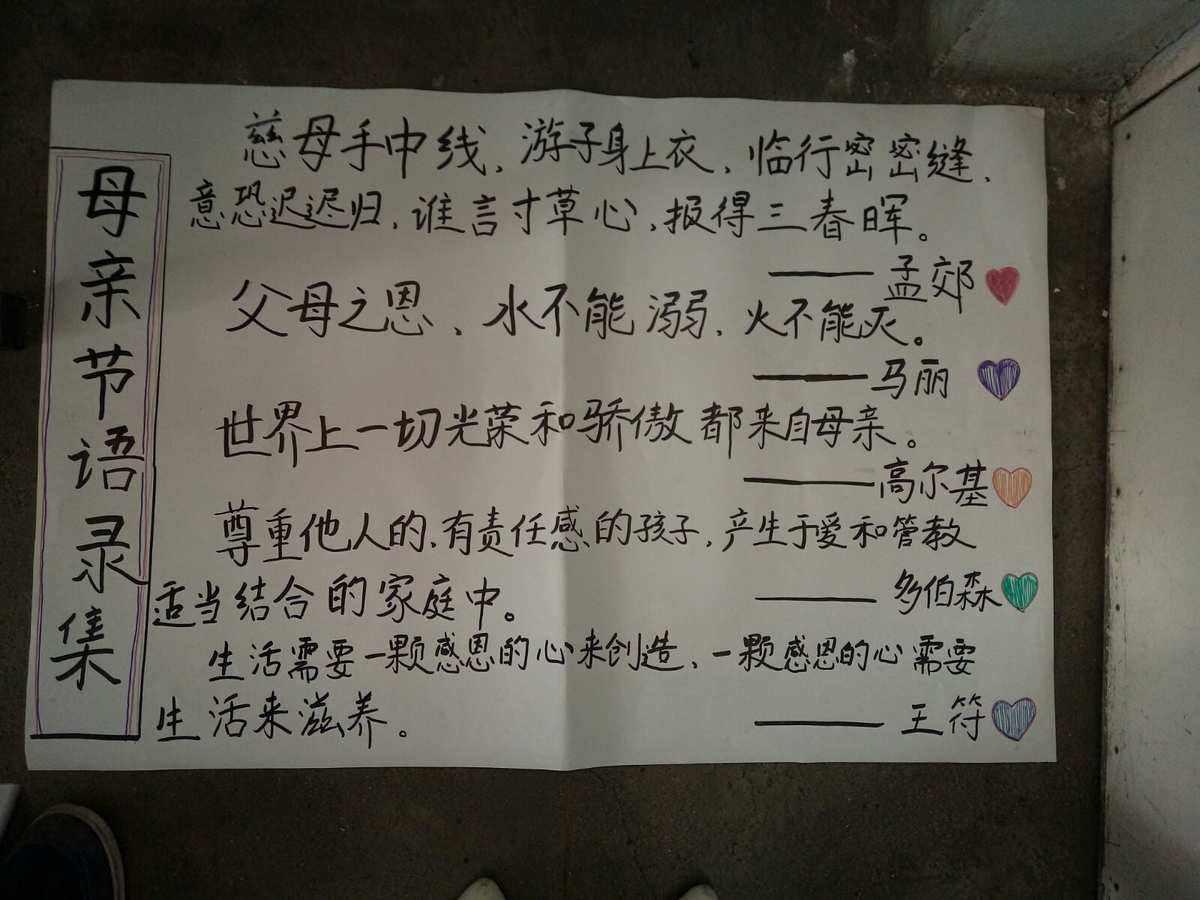 母亲节语录集
慈母手中线、游子身上衣、临行密密缝、
意恐迟迟归、谁言寸草心、报得三春晖。
——孟郊
父母之恩、水不能溺、火不能灭。
——马丽
世界上一切光荣和骄傲都来自母亲。
——高尔基
尊重他人的、有责任感的孩子，产生于爱和管教
适当结合的家庭中。
——多伯森
生活需要一颗感恩的心来创造、一颗感恩的心需要
生活来滋养。
——王符